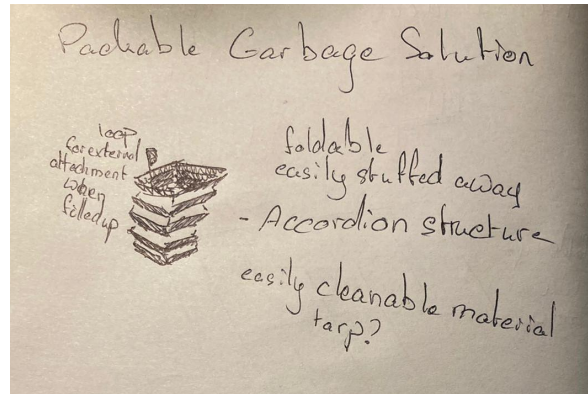 Packable Garbage Solution
loop
for external
attachment
when
filled up
foldable
easily stuffed away
- Accordion structure
easily cleanable material
tarp?